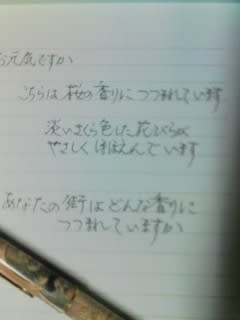 お元気ですか
こちらは桜の香りに つつまれています
淡いさくら色した花びらが
やさしく ほほえんでいます
あなたの街は どんな香りに
つつまれていますか